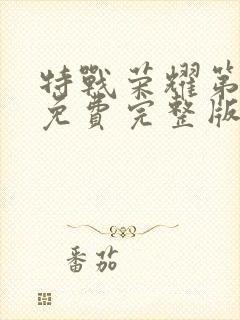 特戰荣耀第
免費完整版
番茄